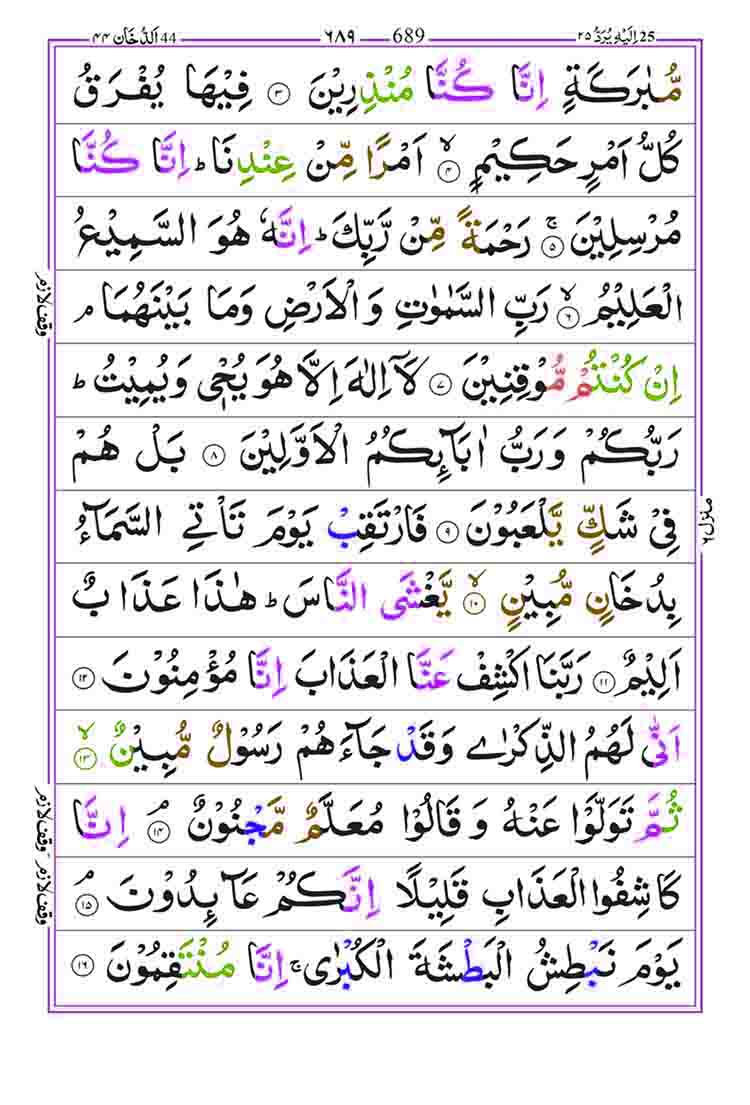 الدخان ٤٤ 44 ٦٨٩ 689 اِلَيْهِ يُرَدُّ ٢٥ 25
مُّبٰرَكَةٍ اِنَّا كُنَّا مُنْذِرِيْنَ ﴿۳﴾ فِيْهَا يُفْرَقُ
كُلُّ اَمْرٍ حَكِيْمٍ ۙ﴿۴﴾ اَمْرًا مِّنْ عِنْدِنَا ؕ اِنَّا كُنَّا
مُرْسِلِيْنَ ۚ﴿۵﴾ رَحْمَةً مِّنْ رَّبِّكَ ؕ اِنَّهٗ هُوَ السَّمِيْعُ
الْعَلِيْمُ ۙ﴿۶﴾ رَبِّ السَّمٰوٰتِ وَالْاَرْضِ وَمَا بَيْنَهُمَا ۘ
وقف لازم
اِنْ كُنْتُمْ مُّوْقِنِيْنَ ﴿۷﴾ لَاۤ اِلٰهَ اِلَّا هُوَ يُحْىٖ وَيُمِيْتُ ؕ
رَبُّكُمْ وَرَبُّ اٰبَآئِكُمُ الْاَوَّلِيْنَ ﴿۸﴾ بَلْ هُمْ
فِىْ شَكٍّ يَّلْعَبُوْنَ ﴿۹﴾ فَارْتَقِبْ يَوْمَ تَاْتِى السَّمَآءُ
منزل ٦
بِدُخَانٍ مُّبِيْنٍ ۙ﴿۱۰﴾ يَّغْشَى النَّاسَ ؕ هٰذَا عَذَابٌ
اَلِيْمٌ ﴿۱۱﴾ رَبَّنَا اكْشِفْ عَنَّا الْعَذَابَ اِنَّا مُؤْمِنُوْنَ ﴿۱۲﴾
اَنّٰى لَهُمُ الذِّكْرٰى وَقَدْ جَآءَهُمْ رَسُوْلٌ مُّبِيْنٌ ۙ﴿۱۳﴾
ثُمَّ تَوَلَّوْا عَنْهُ وَقَالُوْا مُعَلَّمٌ مَّجْنُوْنٌ ۘ﴿۱۴﴾ اِنَّا
وقف لازم
كَاشِفُوا الْعَذَابِ قَلِيْلًا اِنَّكُمْ عَآئِدُوْنَ ۘ﴿۱۵﴾
وقف لازم
يَوْمَ نَبْطِشُ الْبَطْشَةَ الْكُبْرٰى ۚ اِنَّا مُنْتَقِمُوْنَ ﴿۱۶﴾